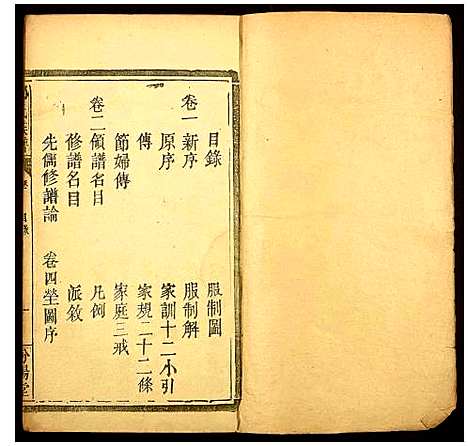 目錄 服制圖
卷一 新序 服制解
原序 家訓十二小引
傳 家規二十二條
節婦傳 家庭三戒
卷二 領譜名目 凡例
修譜名目 派敘
先儒修譜論 卷四 塋圖序
目錄
汾陽堂